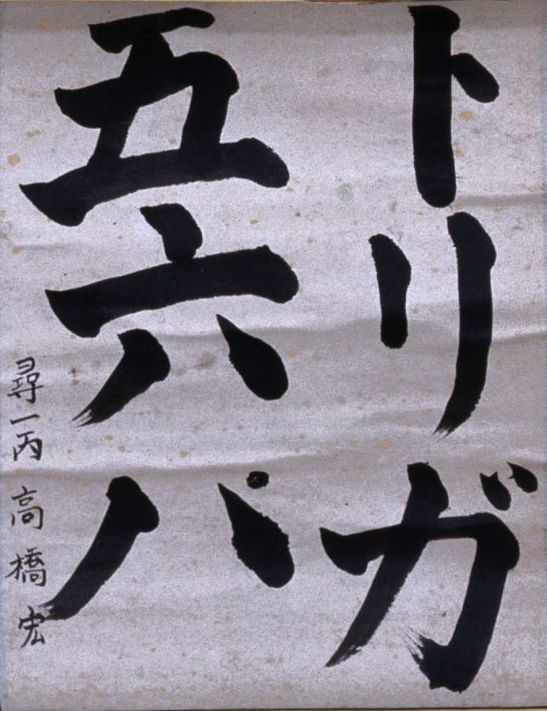 トリガ
五六パ
尋一丙 高橋宏